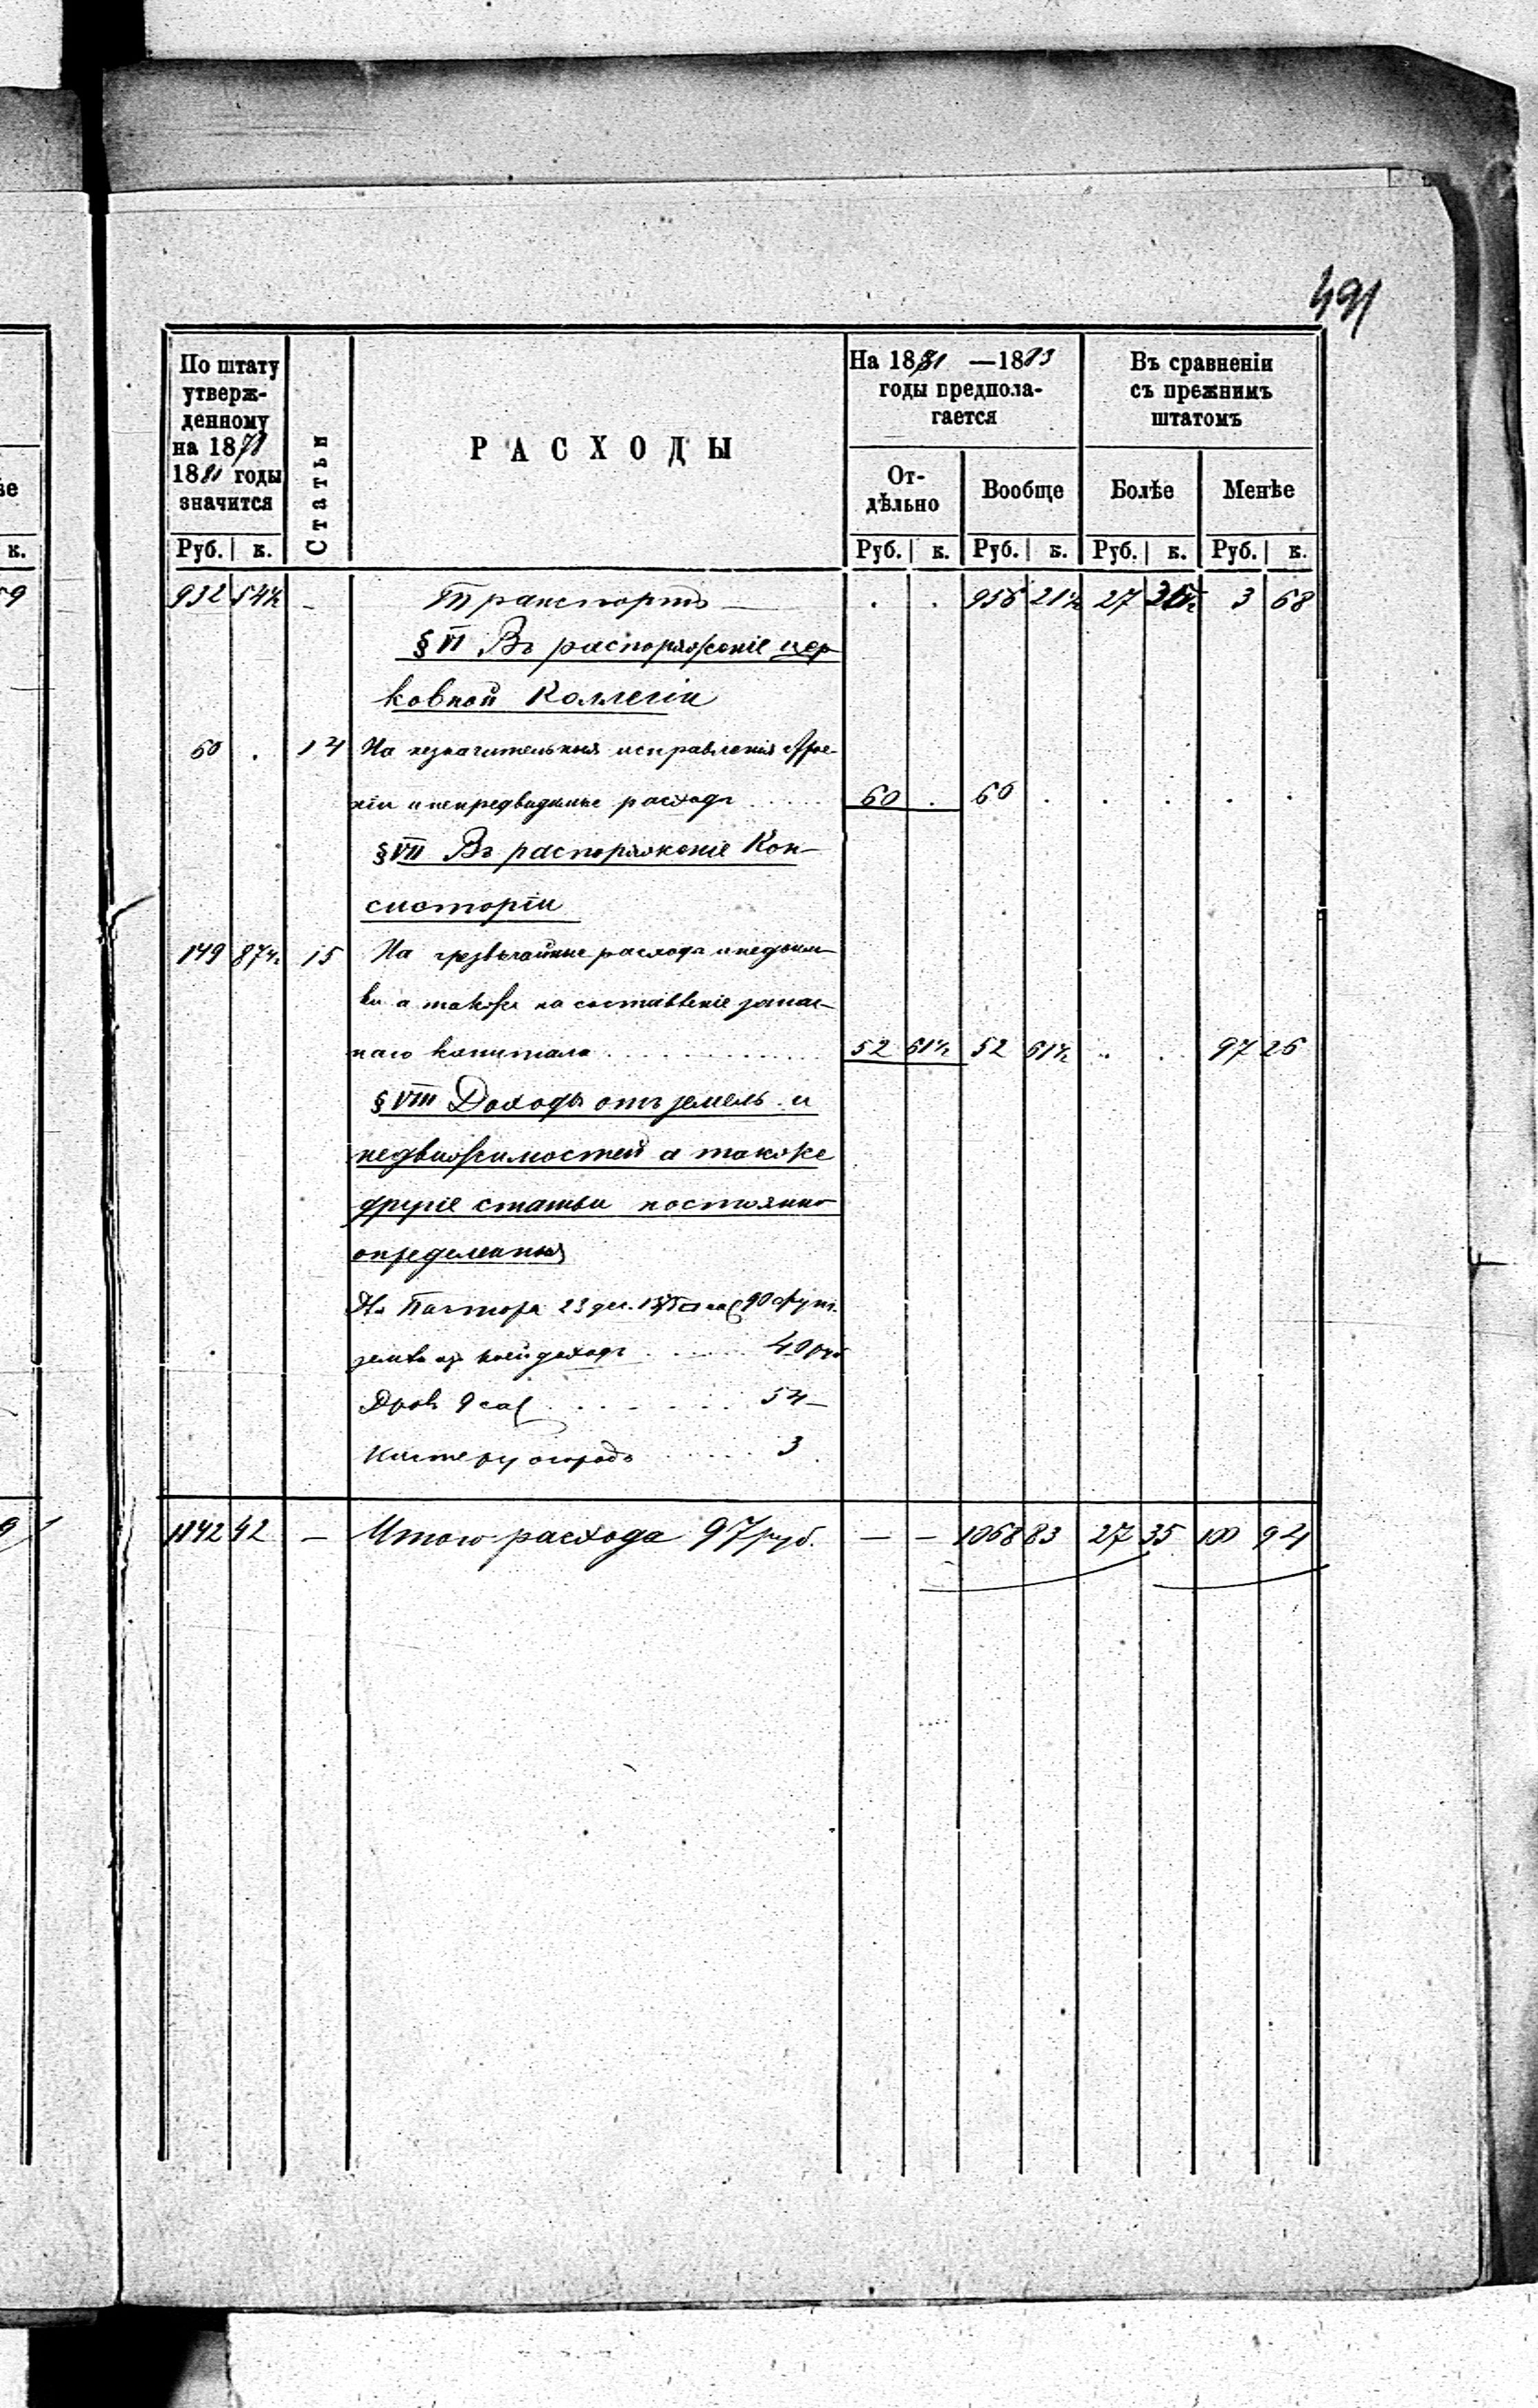 491
По штату
утверж-
денному
на 1878
1881 годы
значится
Статьи
РАСХОДЫ
На 1881 —1883
годы предпола-
гается
Въ сравненіи
съ прежнимъ
штатомъ
От-
дѣльно
Вообще
Болѣе
Менѣе
Руб. к. Руб. к. Руб. к. Руб. к. Руб. к.
932 54½ – Транспортъ — . . 956 21½ 27 35½ 3 68
§ VI Въ распоряженіе цер-
ковной Коллегіи
60 . 14 На незначительныя исправленія
и непредвидимые расходы . . . . . 60 . 60 . . . . .
§ VII Въ распоряженіе Кон-
систоріи
149 87½ 15 На чрезвычайные расходы и недоим-
ки а также на составленіе запас-
наго капитала . . . . . . . . . . 52 61½ 52 61½ . . 97 26
§ VIII Доходы отъ земель и
недвижимостей а также
другіе статьи постоянно
определенныя
Пастора 23 дес. 90 фут.
земли изъ коей доходъ . . . . . 40 руб
Дровъ 9 саж . . . . . . 54 –
Кистеру огородъ . . . . . 3
1142 42 – Итого расхода 97 руб. — – 1068 83 27 35 100 94